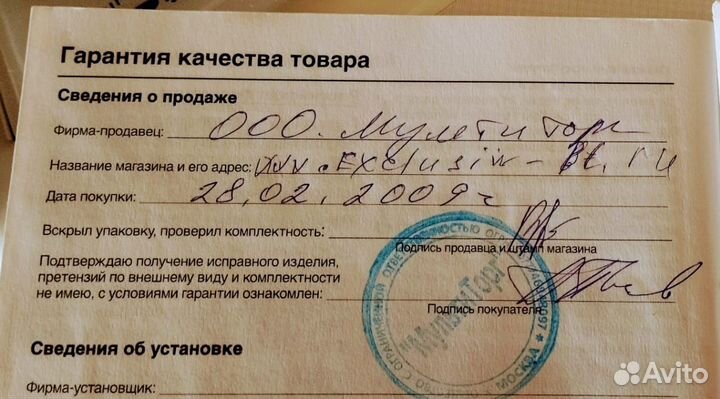 Гарантия качества товара
Сведения о продаже
Фирма-продавец: ООО. Мулети торг
Название магазина и его адрес: www.Exclusiv-Bt.ru
Дата покупки: 28.02.2009г
Вскрыл упаковку, проверил комплектность:
Подпись продавца и штамп магазина
Подтверждаю получение исправного изделия,
претензий по внешнему виду и комплектности
не имею, с условиями гарантии ознакомлен:
Подпись покупателя
"МультиТорг"
МОСКВА
Сведения об установке
Фирма-установщик:
Avito